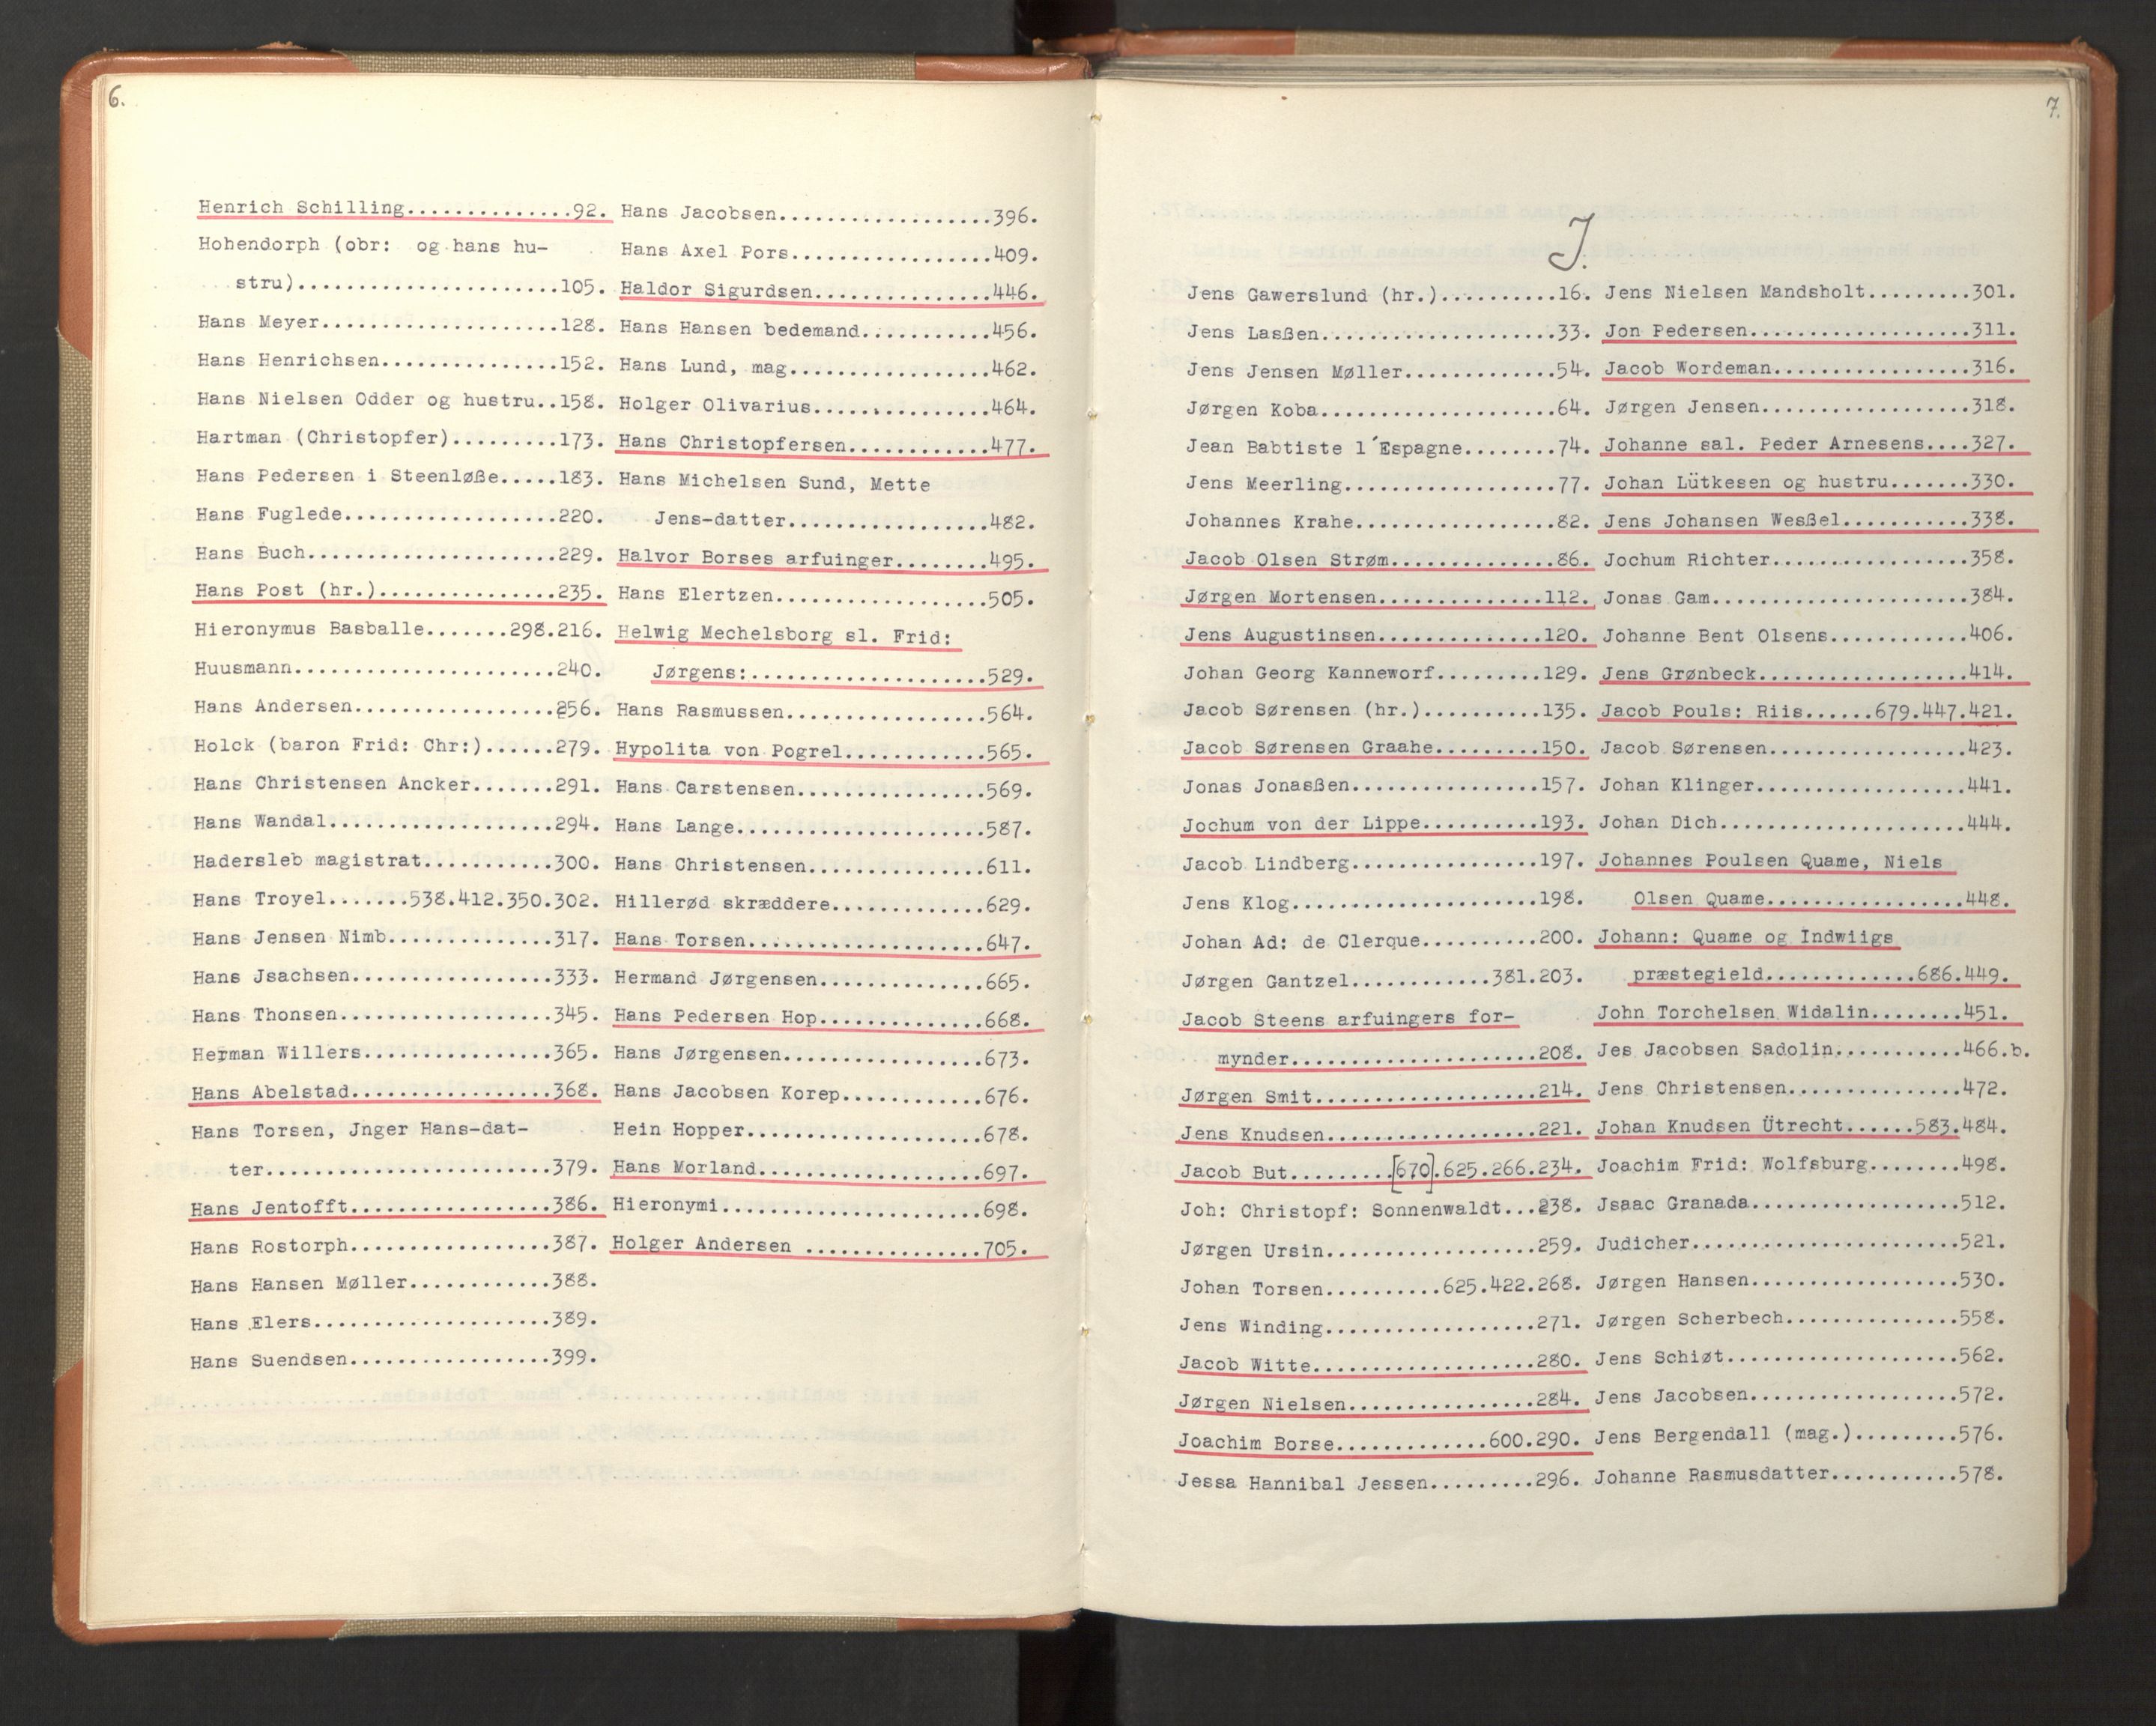 6.
Henrich Schilling..............92.
Hohendorph (obr: og hans hu-
stru)......................105.
Hans Meyer....................128.
Hans Henrichsen...............152.
Hans Nielsen Odder og hustru..158.
Hartman (Christopfer).........173.
Hans Pedersen i Steenløße.....183.
Hans Fuglede..................220.
Hans Buch.....................229.
Hans Post (hr.)...............235.
Hieronymus Basballe.......298.216.
Huusmann......................240.
Hans Andersen.................256.
Holck (baron Frid: Chr:)......279.
Hans Christensen Ancker.......291.
Hans Wandal...................294.
Hadersleb magistrat...........300.
Hans Troyel.......538.412.350.302.
Hans Jensen Nimb..............317.
Hans Jsachsen.................333.
Hans Thonsen..................345.
Herman Willers................365.
Hans Abelstad.................368.
Hans Torsen, Jnger Hans-dat-
ter........................379.
Hans Jentofft.................386.
Hans Rostorph.................387.
Hans Hansen Møller............388.
Hans Elers....................389.
Hans Suendsen.................399.
Hans Jacobsen..................396.
Hans Axel Pors.................409.
Haldor Sigurdsen...............446.
Hans Hansen bedemand...........456.
Hans Lund, mag.................462.
Holger Olivarius...............464.
Hans Christopfersen............477.
Hans Michelsen Sund, Mette
Jens-datter.................482.
Halvor Borses arfuinger........495.
Hans Elertzen..................505.
Helwig Mechelsborg sl. Frid:
Jørgens:....................529.
Hans Rasmussen.................564.
Hypolita von Pogrel............565.
Hans Carstensen................569.
Hans Lange.....................587.
Hans Christensen...............611.
Hillerød skræddere.............629.
Hans Torsen....................647.
Hermand Jørgensen..............665.
Hans Pedersen Hop..............668.
Hans Jørgensen.................673.
Hans Jacobsen Korep............676.
Hein Hopper....................678.
Hans Morland...................697.
Hieronymi......................698.
Holger Andersen ...............705.
7.
J.
Jens Gawerslund (hr.)..........16.
Jens Lasßen....................33.
Jens Jensen Møller.............54.
Jørgen Koba....................64.
Jean Babtiste l´Espagne........74.
Jens Meerling..................77.
Johannes Krahe.................82.
Jacob Olsen Strøm..............86.
Jørgen Mortensen..............112.
Jens Augustinsen..............120.
Johan Georg Kanneworf.........129.
Jacob Sørensen (hr.)..........135.
Jacob Sørensen Graahe.........150.
Jonas Jonasßen................157.
Jochum von der Lippe..........193.
Jacob Lindberg................197.
Jens Klog.....................198.
Johan Ad: de Clerque..........200.
Jørgen Gantzel............381.203.
Jacob Steens arfuingers for-
mynder.....................208.
Jørgen Smit...................214.
Jens Knudsen..................221.
Jacob But.........[670].625.266.234.
Joh: Christopf: Sonnenwaldt...238.
Jørgen Ursin..................259.
Johan Torsen..........625.422.268.
Jens Winding..................271.
Jacob Witte...................280.
Jørgen Nielsen................284.
Joachim Borse.............600.290.
Jessa Hannibal Jessen.........296.
Jens Nielsen Mandsholt.........301.
Jon Pedersen...................311.
Jacob Wordeman.................316.
Jørgen Jensen..................318.
Johanne sal. Peder Arnesens....327.
Johan Lütkesen og hustru.......330.
Jens Johansen Wesßel...........338.
Jochum Richter.................358.
Jonas Gam......................384.
Johanne Bent Olsens............406.
Jens Grønbeck..................414.
Jacob Pouls: Riis......679.447.421.
Jacob Sørensen.................423.
Johan Klinger..................441.
Johan Dich.....................444.
Johannes Poulsen Quame, Niels
Olsen Quame.................448.
Johann: Quame og Indwiigs
præstegield.............686.449.
John Torchelsen Widalin........451.
Jes Jacobsen Sadolin...........466.b.
Jens Christensen...............472.
Johan Knudsen Ütrecht......583.484.
Joachim Frid: Wolfsburg........498.
Jsaac Granada..................512.
Judicher.......................521.
Jørgen Hansen..................530.
Jørgen Scherbech...............558.
Jens Schiøt....................562.
Jens Jacobsen..................572.
Jens Bergendall (mag.).........576.
Johanne Rasmusdatter...........578.